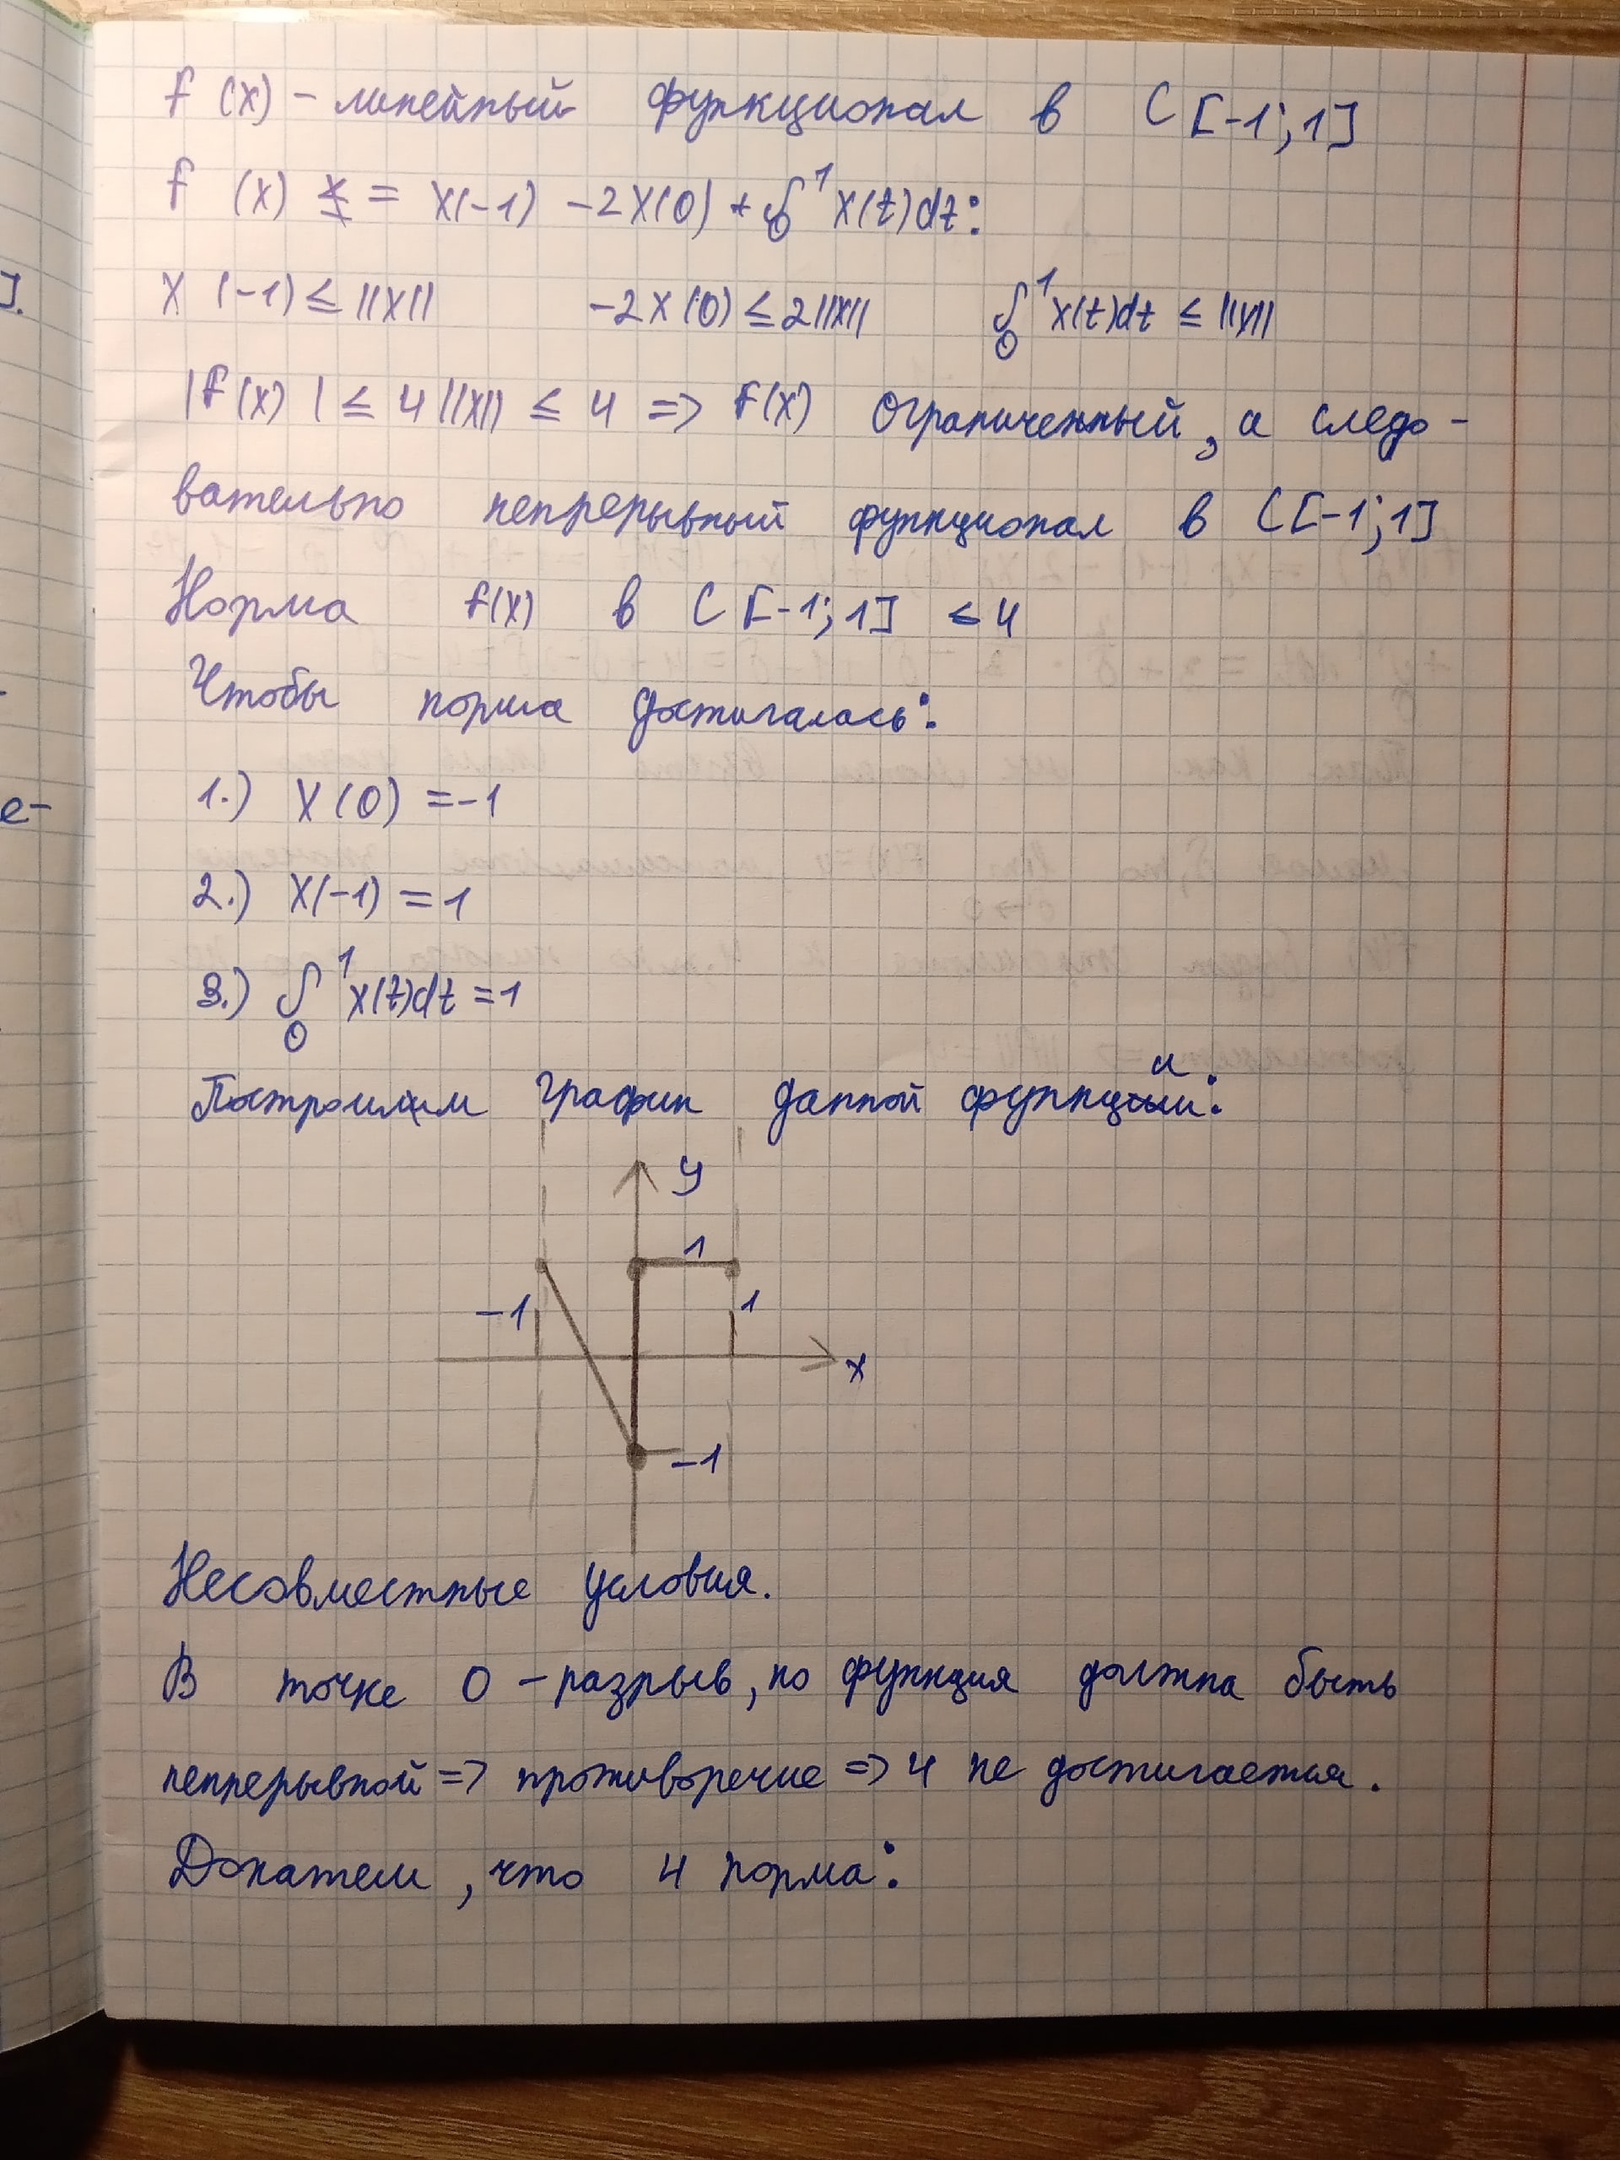 f (x) - линейный функционал в C [-1; 1]
f (x) = x(-1) - 2x(0) + ∫₀¹ x(t)dt:
x (-1) ≤ ||x|| -2x(0) ≤ 2||x|| ∫₀¹ x(t)dt ≤ ||x||
|f(x)| ≤ 4||x|| ≤ 4 => f(x) ограниченный, а следо-
вательно непрерывный функционал в C[-1; 1]
Норма f(x) в C [-1; 1] ≤ 4
Чтобы норма достигалась:
1.) x(0) = -1
2.) x(-1) = 1
3.) ∫₀¹ x(t)dt = 1
Построим график данной функции:
y
1
-1 1
x
-1
Несовместные условия.
В точке 0 - разрыв, но функция должна быть
непрерывной => противоречие => 4 не достигается.
Докажем, что 4 норма:
].
-
е-